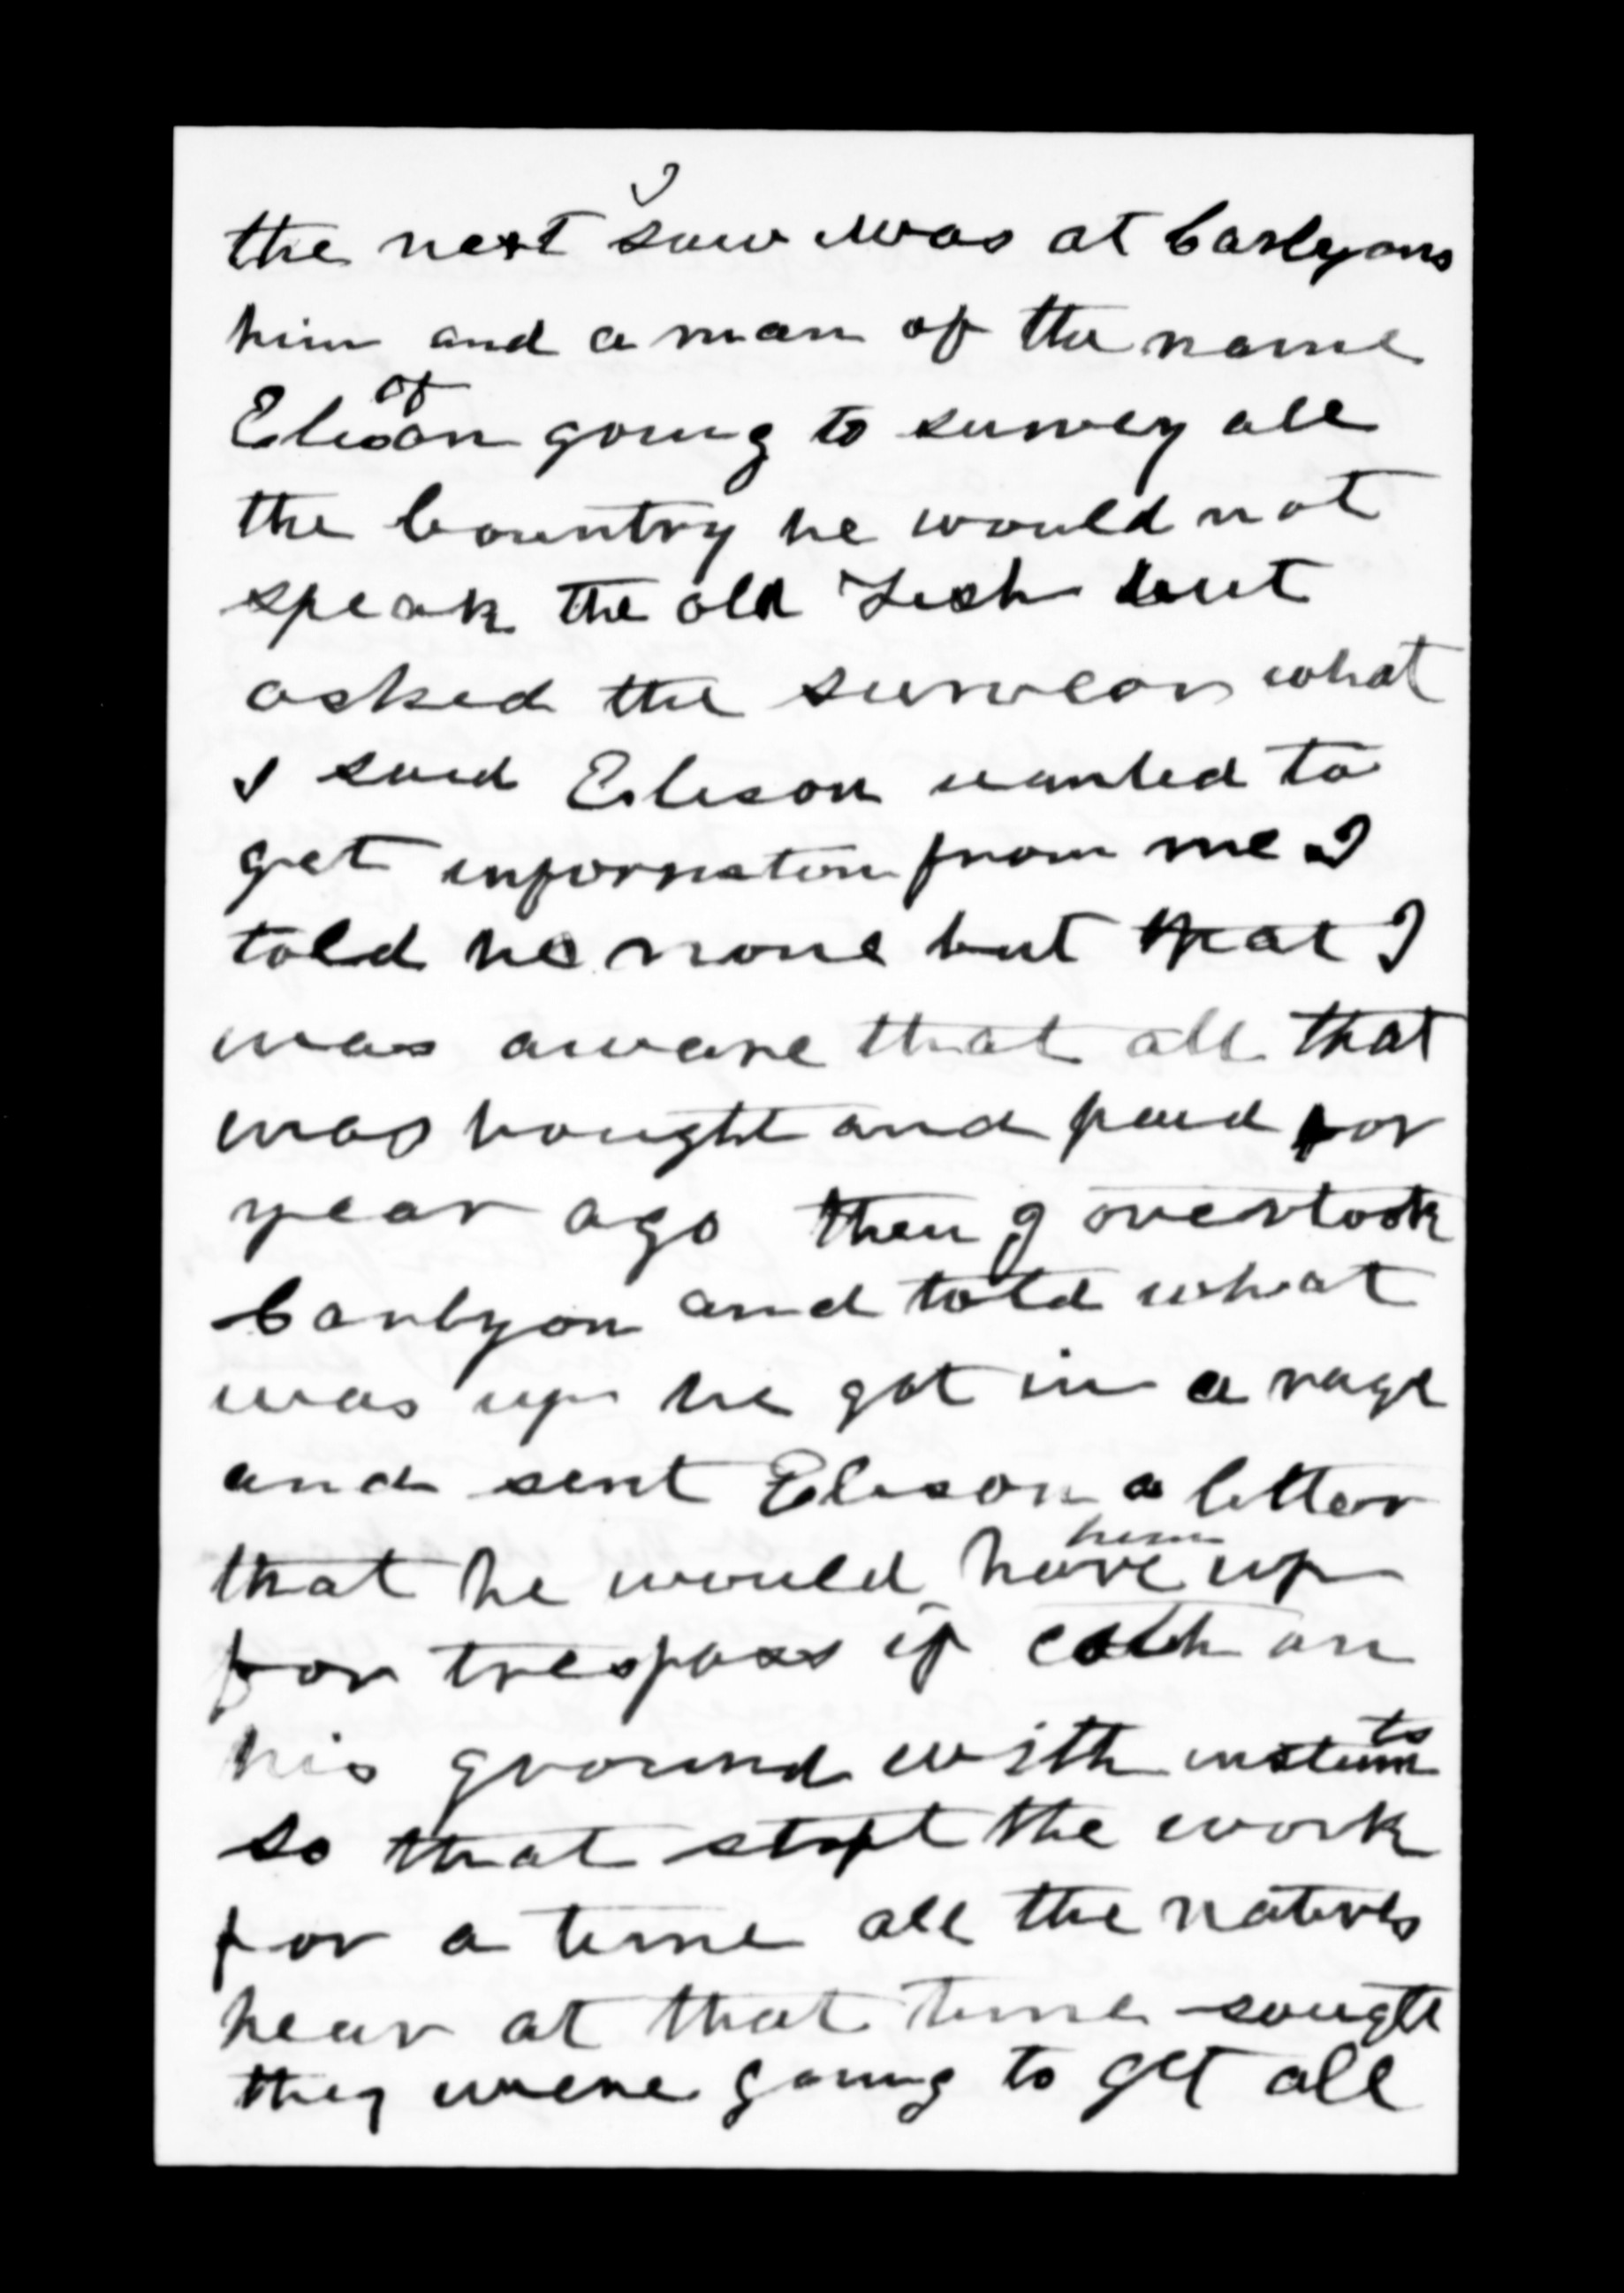 the next I saw was at Carlyons
him and a man of the name
of Elison going to survey all
the Country he would not
speak the old Tush but
asked the survear what
I said Elison wanted to
get informaton from me I
told he none but that I
was aware that all that
was bought and paid for
year ago then I overtook
Carlyon and told what
was up he got in a rage
and sent Elison a letter
that he would have him up
for trespass if catch on
his ground with instumts
so that stopt the work
for a time all the natives
hear at that time sought
they were going to get all